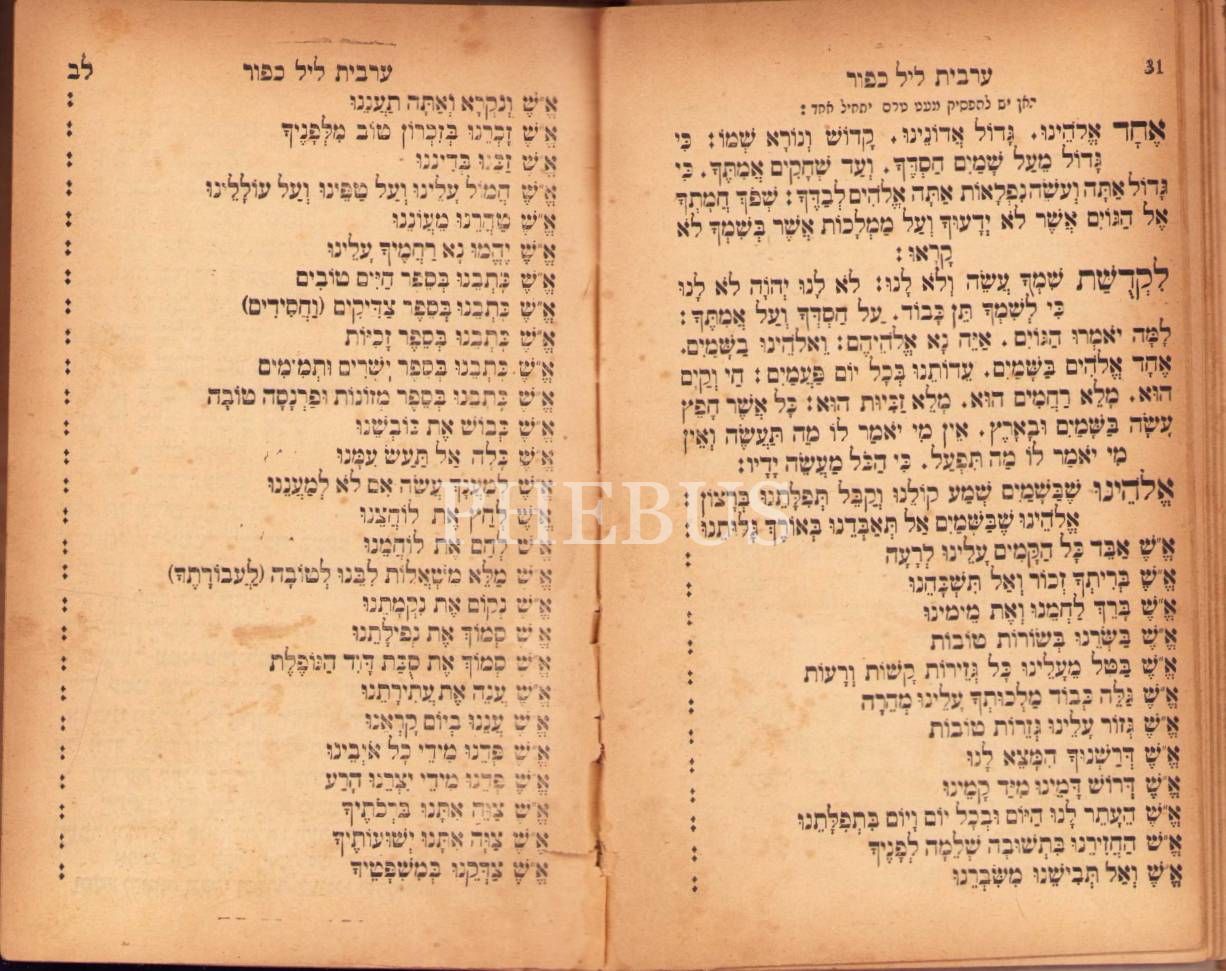 31
ערבית ליל כפור
כאן יש להפסיק מעט טרם יתחיל אחד :
אֶחָד אֱלֹהֵינוּ. גָּדוֹל אֲדוֹנֵינוּ. קָדוֹשׁ וְנוֹרָא שְׁמוֹ: כִּי
גָּדוֹל מֵעַל שָׁמַיִם חַסְדֶּךָ. וְעַד שְׁחָקִים אֲמִתֶּךָ. כִּי
גָּדוֹל אַתָּה וְעֹשֵׂה נִפְלָאוֹת אַתָּה אֱלֹהִים לְבַדֶּךָ: שְׁפֹךְ חֲמָתְךָ
אֶל הַגּוֹיִם אֲשֶׁר לֹא יְדָעוּךָ וְעַל מַמְלָכוֹת אֲשֶׁר בְּשִׁמְךָ לֹא
קָרָאוּ:
לִקְדֻשַּׁת שִׁמְךָ עֲשֵׂה וְלֹא לָנוּ: לֹא לָנוּ יְהֹוָה לֹא לָנוּ
כִּי לְשִׁמְךָ תֵּן כָּבוֹד. עַל חַסְדְּךָ וְעַל אֲמִתֶּךָ:
לָמָּה יֹאמְרוּ הַגּוֹיִם. אַיֵּה נָא אֱלֹהֵיהֶם: וֵאלֹהֵינוּ בַשָּׁמַיִם.
אֶחָד אֱלֹהִים בַּשָּׁמַיִם. עֵדוֹתֵנוּ בְּכָל יוֹם פַּעֲמַיִם: חַי וְקַיָּם
הוּא. מָלֵא רַחֲמִים הוּא. מָלֵא זַכִּיּוֹת הוּא: כָּל אֲשֶׁר חָפֵץ
עָשָׂה בַּשָּׁמַיִם וּבָאָרֶץ. אֵין מִי יֹאמַר לוֹ מַה תַּעֲשֶׂה וְאֵין
מִי יֹאמַר לוֹ מַה תִּפְעַל. כִּי הַכֹּל מַעֲשֵׂה יָדָיו:
אֱלֹהֵינוּ שֶׁבַּשָּׁמַיִם שְׁמַע קוֹלֵנוּ וְקַבֵּל תְּפִלָּתֵנוּ בְּרָצוֹן:
אֱלֹהֵינוּ שֶׁבַּשָּׁמַיִם אַל תְּאַבְּדֵנוּ בְּאוֹרֶךְ גָּלוּתֵנוּ :
אֱ״שֶׁ אַבֵּד כָּל הַקָּמִים עָלֵינוּ לְרָעָה :
אֱ״שֶׁ בְּרִיתְךָ זְכוֹר וְאַל תִּשְׁכָּחֵנוּ :
אֱ״שֶׁ בָּרֵךְ לַחְמֵנוּ וְאֶת מֵימֵינוּ :
אֱ״שֶׁ בַּשְּׂרֵנוּ בְּשׂוֹרוֹת טוֹבוֹת :
אֱ״שֶׁ בַּטֵּל מֵעָלֵינוּ כָּל גְּזֵירוֹת קָשׁוֹת וְרָעוֹת :
אֱ״שֶׁ גַּלֵּה כְּבוֹד מַלְכוּתְךָ עָלֵינוּ מְהֵרָה :
אֱ״שֶׁ גְּזוֹר עָלֵינוּ גְּזֵרוֹת טוֹבוֹת :
אֱ״שֶׁ דְּרַשְׁנוּךָ הִמָּצֵא לָנוּ :
אֱ״שֶׁ דְּרוֹשׁ דָּמֵינוּ מִיַּד קָמֵינוּ :
אֱ״שֶׁ הֵעָתֵר לָנוּ הַיּוֹם וּבְכָל יוֹם וָיוֹם בִּתְפִלָּתֵנוּ :
אֱ״שֶׁ הַחֲזִירֵנוּ בִּתְשׁוּבָה שְׁלֵמָה לְפָנֶיךָ :
אֱ״שֶׁ וְאַל תְּבִישֵׁנוּ מִשִּׂבְרֵנוּ :
לב
ערבית ליל כפור
אֱ״שֶׁ וְנִקְרָא וְאַתָּה תַעֲנֵנוּ :
אֱ״שֶׁ זָכְרֵנוּ בְּזִכְרוֹן טוֹב מִלְּפָנֶיךָ :
אֱ״שֶׁ זַכֵּנוּ בְּדִינֵנוּ :
אֱ״שֶׁ חֲמוֹל עָלֵינוּ וְעַל טַפֵּינוּ וְעַל עוֹלָלֵינוּ :
אֱ״שֶׁ טַהֲרֵנוּ מֵעֲוֹנֵנוּ :
אֱ״שֶׁ יֶהֱמוּ נָא רַחֲמֶיךָ עָלֵינוּ :
אֱ״שֶׁ כָּתְבֵנוּ בְּסֵפֶר חַיִּים טוֹבִים :
אֱ״שֶׁ כָּתְבֵנוּ בְּסֵפֶר צַדִּיקִים (וַחֲסִידִים) :
אֱ״שֶׁ כָּתְבֵנוּ בְּסֵפֶר זָכִיּוֹת :
אֱ״שֶׁ כָּתְבֵנוּ בְּסֵפֶר יְשָׁרִים וּתְמִימִים :
אֱ״שֶׁ כָּתְבֵנוּ בְּסֵפֶר מְזוֹנוֹת וּפַרְנָסָה טוֹבָה :
אֱ״שֶׁ כְּבוֹשׁ אֶת כּוֹבְשֵׁנוּ :
אֱ״שֶׁ כָּלָה אַל תַּעַשׂ עִמָּנוּ :
אֱ״שֶׁ לְמַעַנְךָ עֲשֵׂה אִם לֹא לְמַעֲנֵנוּ :
אֱ״שֶׁ לְחַץ אֶת לוֹחֲצֵנוּ :
אֱ״שֶׁ לְחַם אֶת לוֹחֲמֵנוּ :
אֱ״שֶׁ מַלֵּא מִשְׁאֲלוֹת לִבֵּנוּ לְטוֹבָה (לַעֲבוֹדָתֶךָ) :
אֱ״שֶׁ נְקוֹם אֶת נִקְמָתֵנוּ :
אֱ״שֶׁ סְמוֹךְ אֶת נְפִילָתֵנוּ :
אֱ״שֶׁ סְמוֹךְ אֶת סֻכַּת דָּוִד הַנּוֹפֶלֶת :
אֱ״שֶׁ עֲנֵה אֶת עֲתִירָתֵנוּ :
אֱ״שֶׁ עֲנֵנוּ בְיוֹם קָרְאֵנוּ :
אֱ״שֶׁ פְּדֵנוּ מִידֵי כָל אֹיְבֵינוּ :
אֱ״שֶׁ פְּדֵנוּ מִידֵי יִצְרֵנוּ הָרַע :
אֱ״שֶׁ צַוֵּה אִתָּנוּ בִּרְכֹתֶיךָ :
אֱ״שֶׁ צַוֵּה אִתָּנוּ יְשׁוּעוֹתֶיךָ :
אֱ״שֶׁ צַדְּקֵנוּ בְּמִשְׁפָּטֶיךָ :
PHEBUS